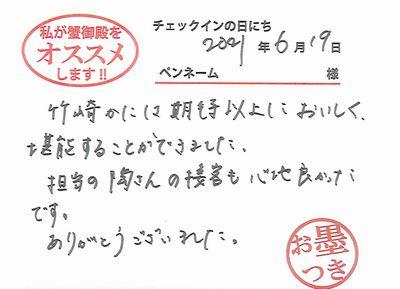 私が蟹御殿を
オススメ
します!!
チェックインの日にち
2021年6月19日
ペンネーム 様
竹崎かには期待以上においしく、
堪能することができました。
担当の陶さんの接客も心地良かった
です。
ありがとうございました。
お墨
つき